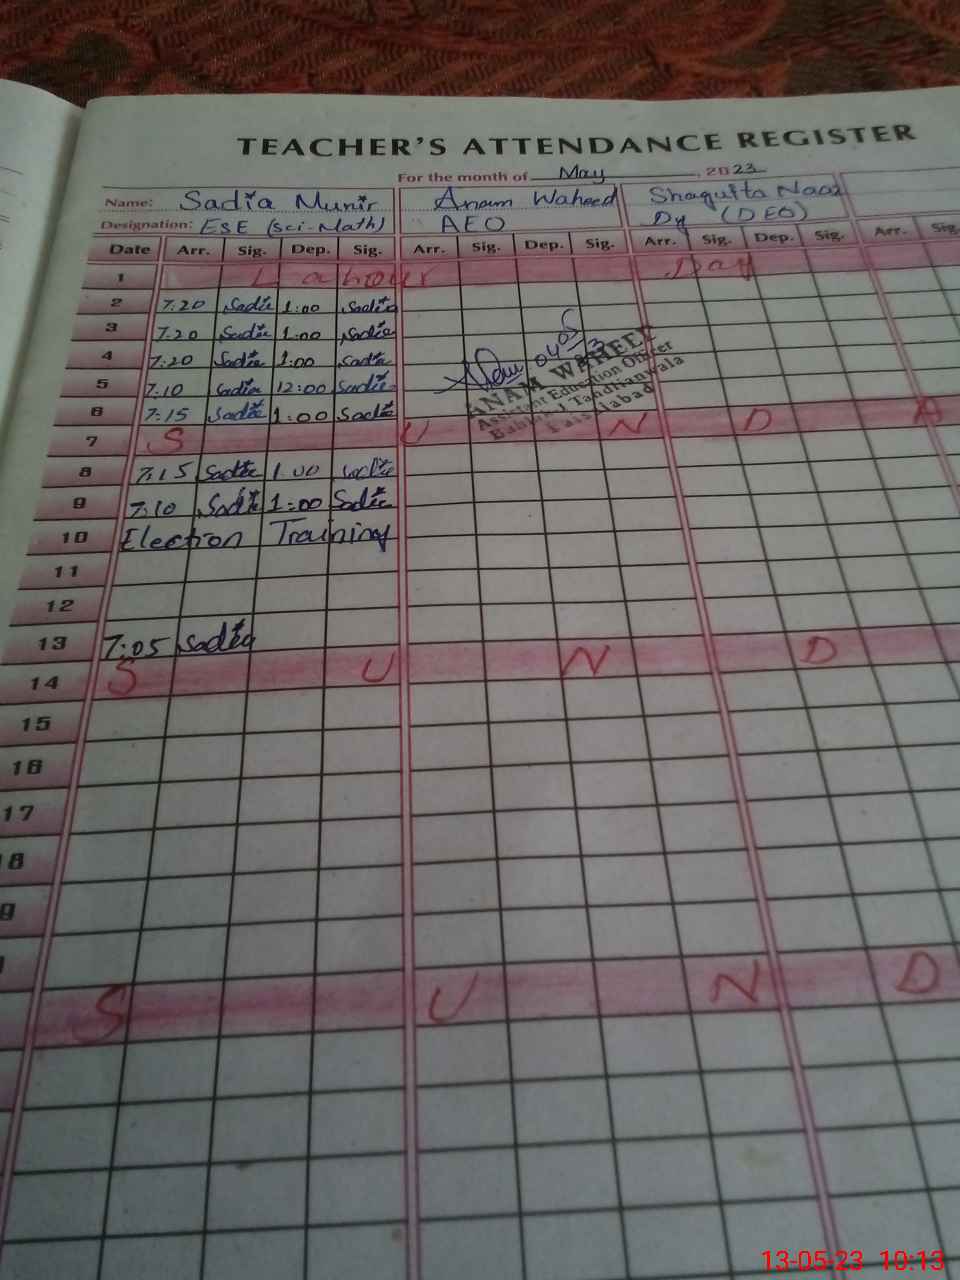 TEACHER'S ATTENDANCE REGISTER
For the month of May, 2023
Name: Sadia Munir Anam Waheed Shagufta Naaz
Designation: ESE (Sci-Math) AEO Dy (DEO)
Date Arr. Sig. Dep. Sig. Arr. Sig. Dep. Sig. Arr. Sig. Dep. Sig. Arr. Sig.
1 Labour Day
2 7:20 Sadia 1:00 Sadia
3 7:20 Sadia 1:00 Sadia
4 7:20 Sadia 1:00 Sadia
04 05
ANAM WAHEED
Assistant Education Officer
Tandlianwala
Faisalabad
5 7:10 Sadia 12:00 Sadia
6 7:15 Sadia 1:00 Sadia
7 S U N D A
8 7:15 Sadia 1:00 Sadia
9 7:10 Sadia 1:00 Sadia
10 Election Training
11
12
13 7:05 Sadia
14 S U N D
15
16
17
18
19
S U N D
13-05-23 10:13